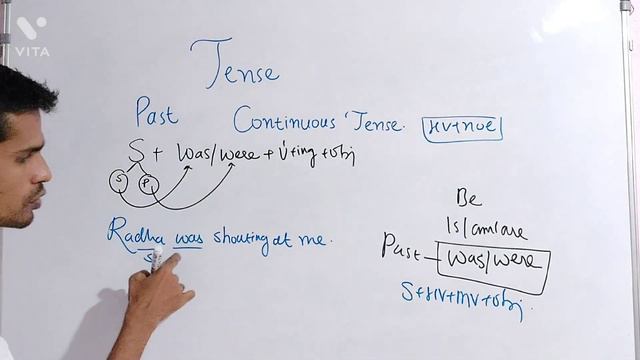 VITA
Tense
Past Continuous Tense. HV+not
S + was/were + V+ing + obj
S P
Radha was shouting at me.
S
Be
Is/am/are
Past - was/were
S+HV+MV+obj.